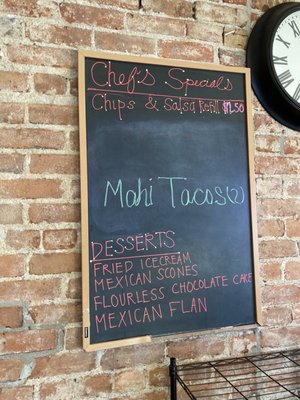 Chef's Specials
Chips & Salsa Refill $1.50
Mahi Tacos(2)
DESSERTS
FRIED ICECREAM
MEXICAN SCONES
FLOURLESS CHOCOLATE CAKE
MEXICAN FLAN